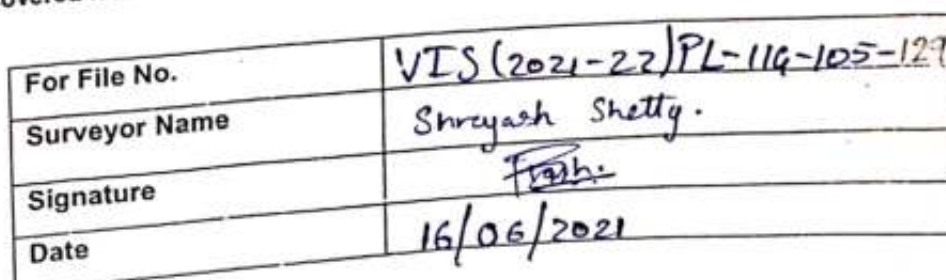 For File No. VIS(2021-22)PL-119-105-129
Surveyor Name Shreyash Shetty.
Signature
Date 16/06/2021